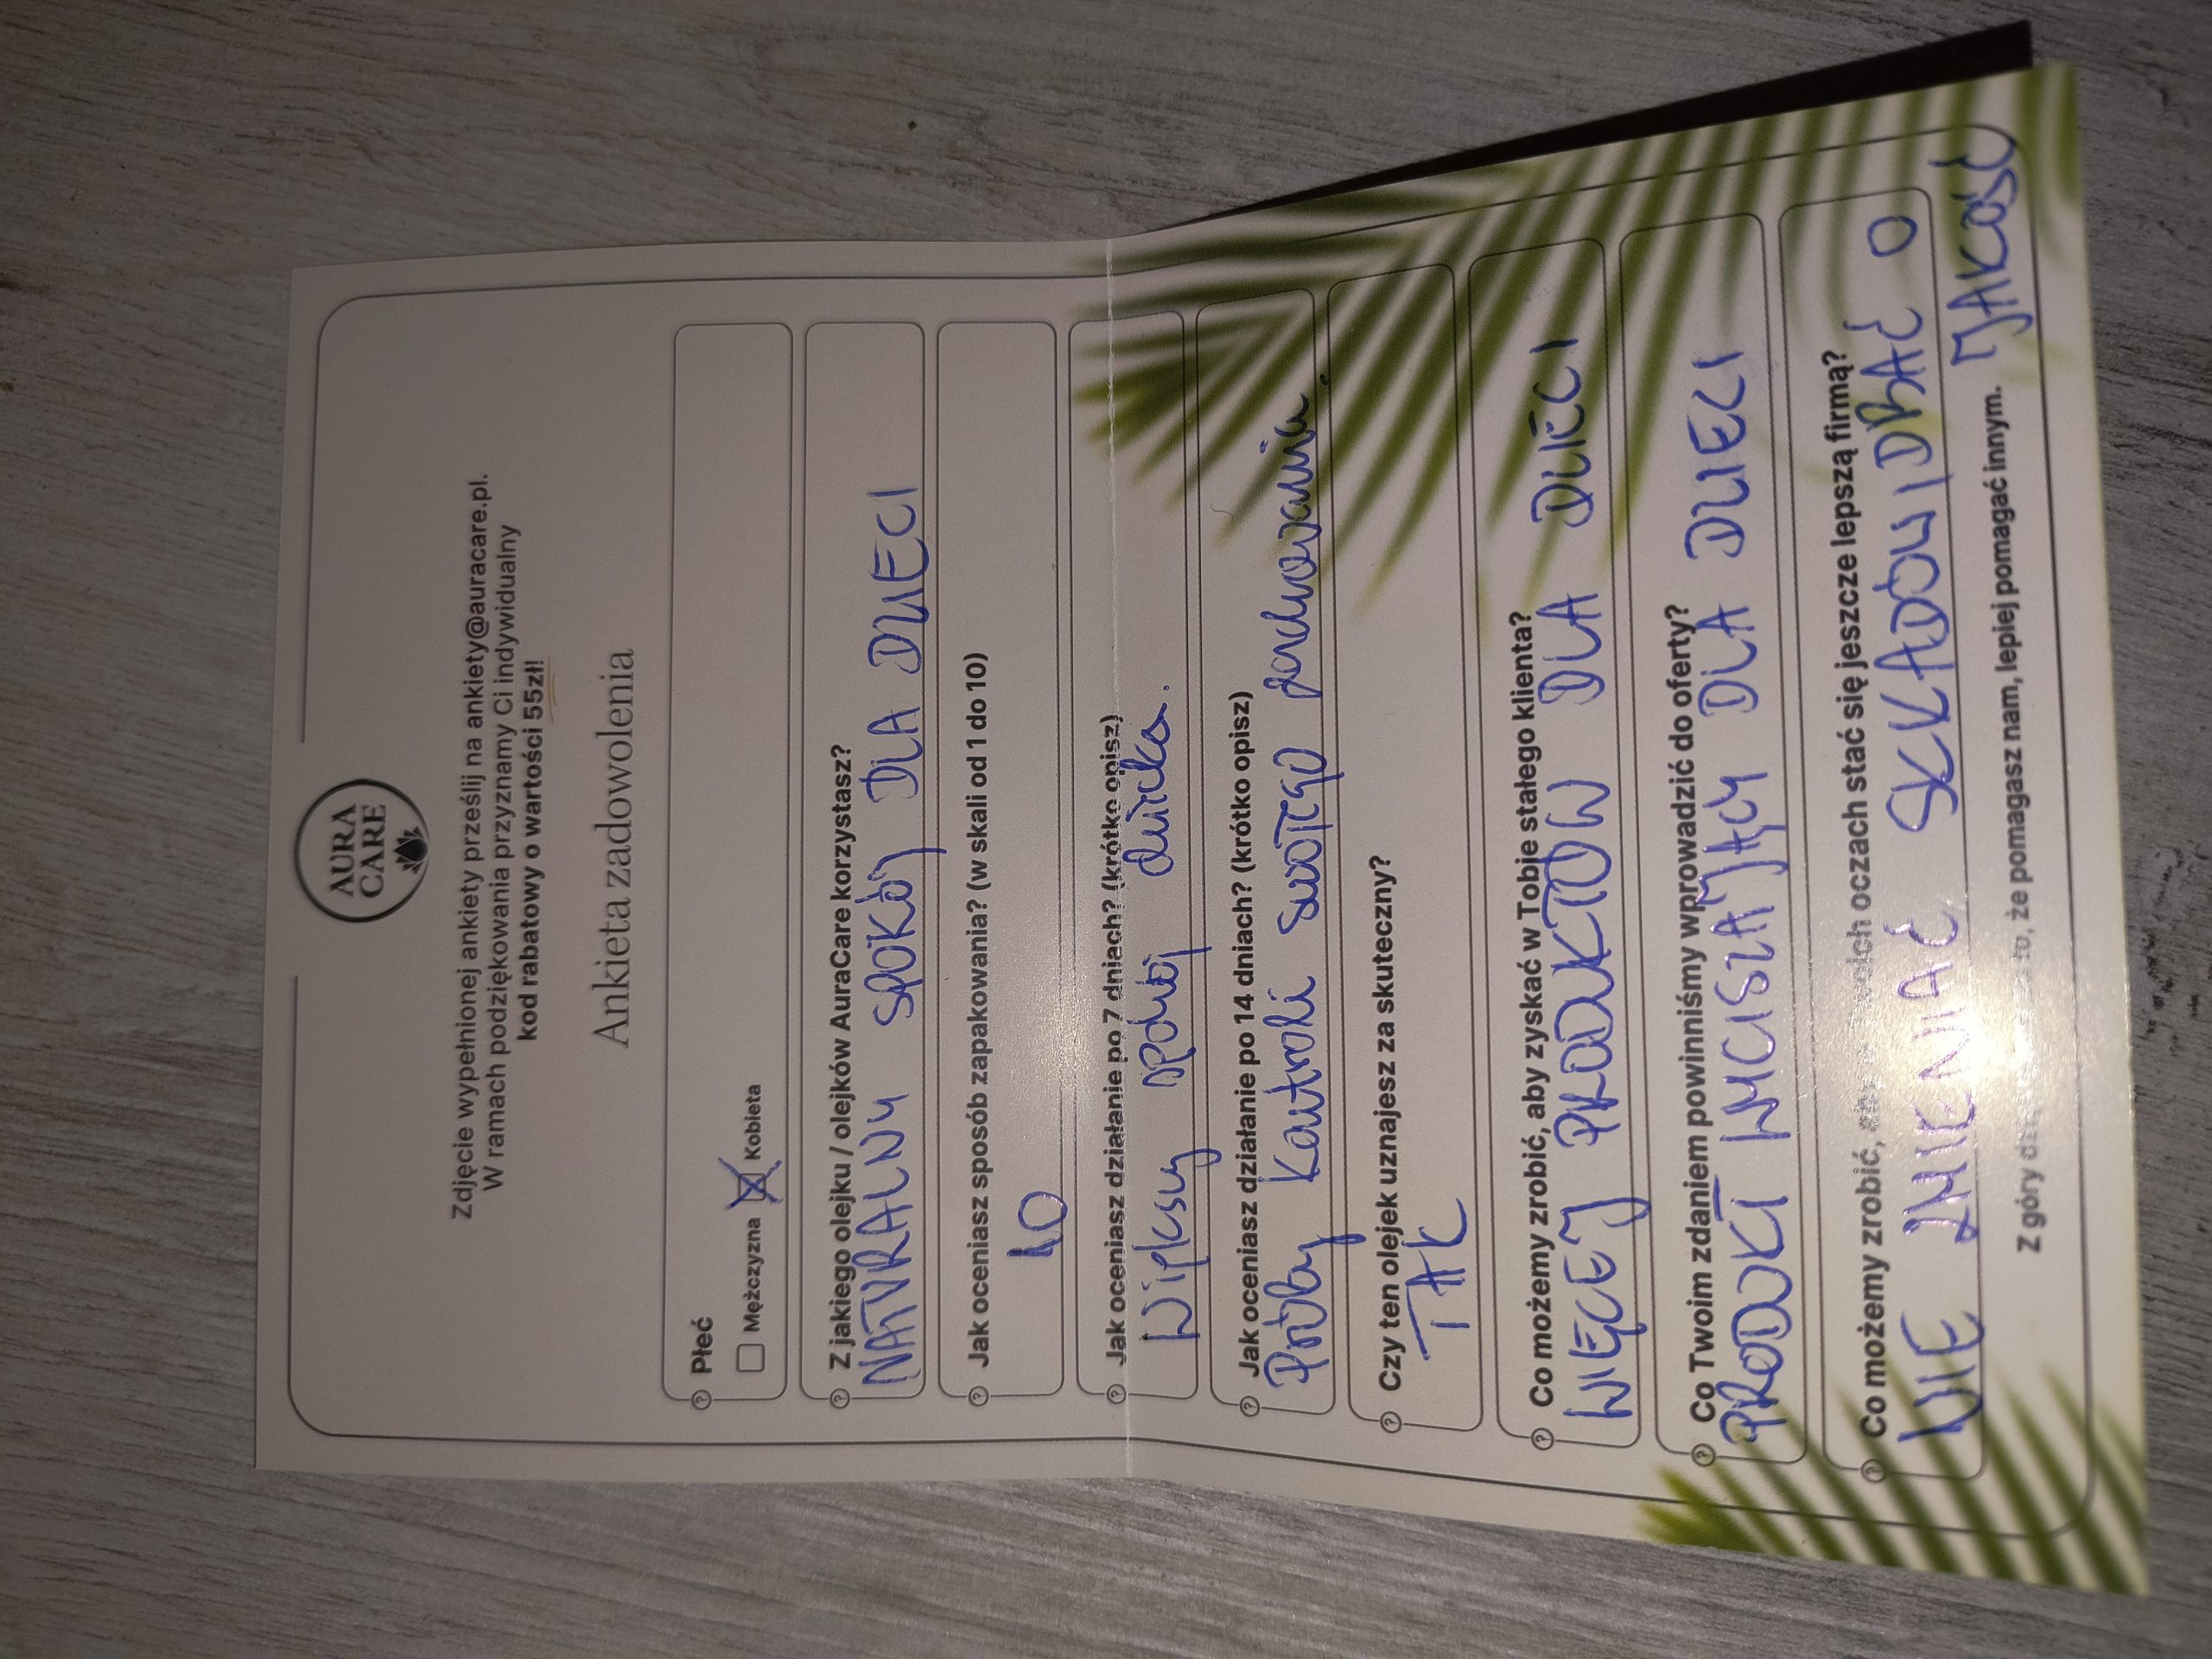 AURA
CARE
Zdjęcie wypełnionej ankiety prześlij na ankiety@auracare.pl.
W ramach podziękowania przyznamy Ci indywidualny
kod rabatowy o wartości 55zł!
Ankieta zadowolenia
Płeć
Mężczyzna Kobieta
Z jakiego olejku / olejków AuraCare korzystasz?
NATURALNY SPOKÓJ DLA DZIECI
Jak oceniasz sposób zapakowania? (w skali od 1 do 10)
10
Jak oceniasz działanie po 7 dniach? (krótko opisz)
Większy spokój dziecka.
Jak oceniasz działanie po 14 dniach? (krótko opisz)
Próby kontroli swojego zachowania.
Czy ten olejek uznajesz za skuteczny?
TAK
Co możemy zrobić, aby zyskać w Tobie stałego klienta?
WIĘCEJ PRODUKTÓW DLA DZIECI
Co Twoim zdaniem powinniśmy wprowadzić do oferty?
PRODUKT WYCISZAJĄCY DLA DZIECI
Co możemy zrobić, oczach stać się jeszcze lepszą firmą?
NIE ZMIENIAĆ SKŁADÓW I DBAĆ O
JAKOŚĆ
Z góry to, że pomagasz nam, lepiej pomagać innym.